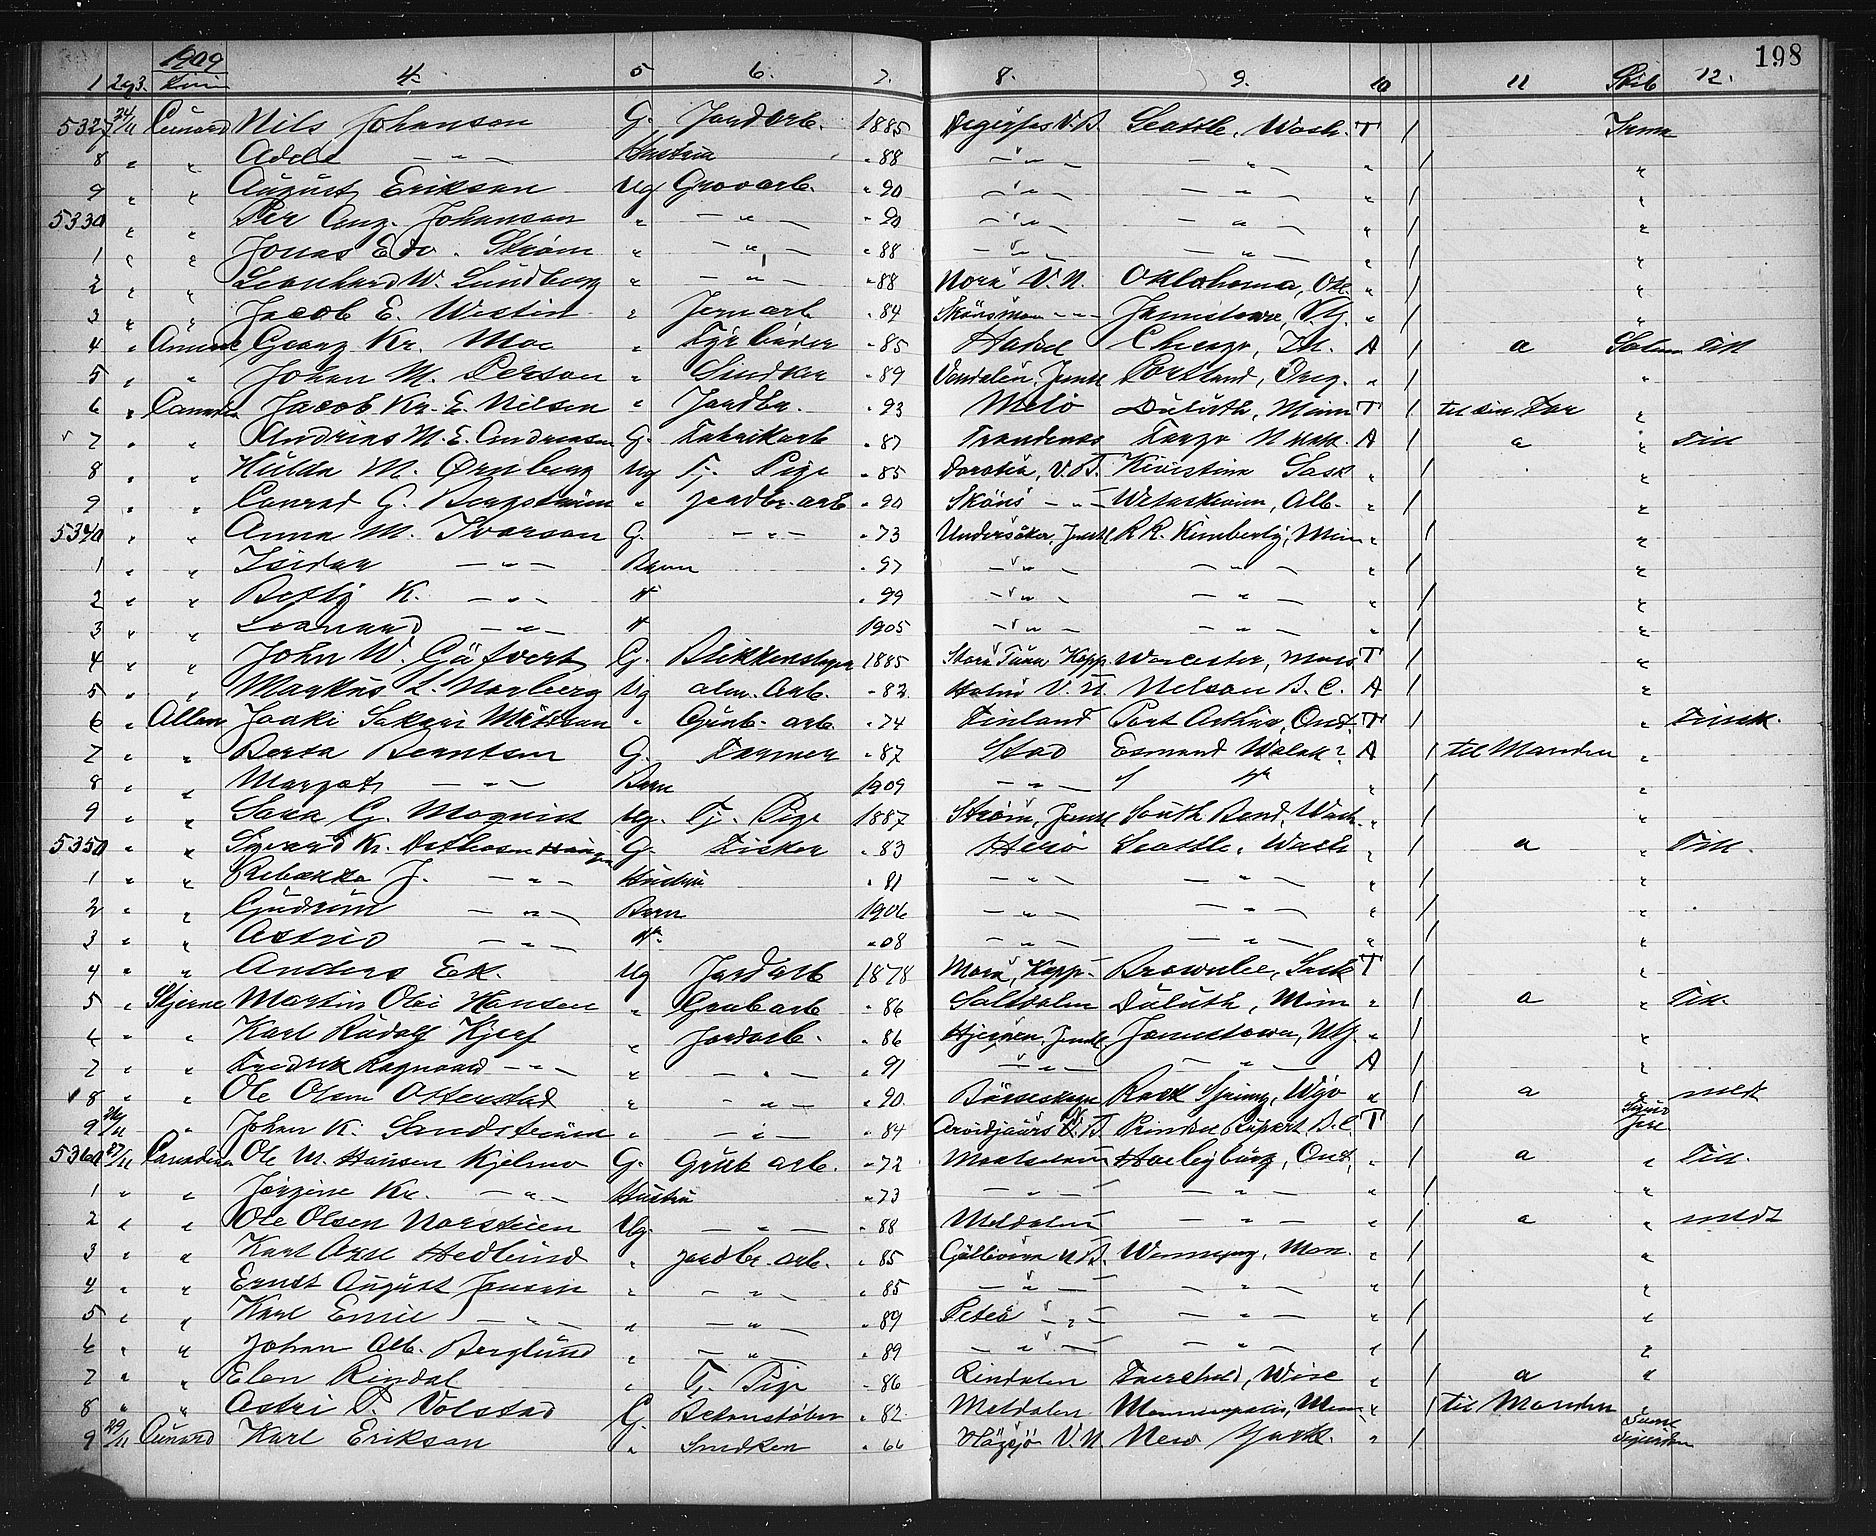 198
1909
1 2 og 3. Linie 4. 5 6. 7. 8. 9. 10 11 Skib 12.
5327 24/11 Cunard Nils Johanson G. Jordarb. 1885 Degerfos V.B. Seattle, Wash. T / Irma
8 " " Adele — " — Hustru " 88 — " — — " — " / "
9 " " August Erikson Ug Grovarb. " 90 — " — — " — " / "
5330 " " Per Aug. Johanson " — " — " 90 — " — — " — " / "
1 " " Jonas Edv. Strøm " — " — " 88 — " — — " — " / "
2 " " Leonhard W. Lundberg " — " — " 88 Nora V.N. Oklohoma, Ok. " / "
3 " " Jacob E. Westin " Jernarb " 84 Skönsmon — " — Jamestown, N.Y. " / "
4 " Georg Kr. Moe " Fyrbøder " 85 Chicago, Ill. A / a Till
5 " " Johan M. Person " Snidker " 89 Portland, Oreg. " / "
6 " Canadian Jacob Kr. E. Nilsen " Jordbr. " 93 Melö Duluth, Minn T / til sin Far "
7 " " Andrias M. E. Andreasen G. Fabrikarb " 87 Trondenes Fargo N. Dak. A / a " Till
8 " " Hulda M. Ørnberg Ug Tj. Pige " 85 Dorotea, V.B. Sask " / "
9 " " Conrad G. Bergström " jordbr. arb " 90 Sköns — " — Wetaskiwin, Alb. " / "
5340 " " Anna M. Ivarson G. — " — " 73 Undersåker, Jemtl R.R. Kimberly, Minn " / "
1 " " Isidor — " — Barn " 97 — " — — " — " / "
2 " " Betty K. — " — " " 99 — " — — " — " / "
3 " " Leonard — " — " 1905 — " — — " — " / "
4 " " John W. Gäfvert G. Blikkenslager 1885 Stora Tuna Kopp Worcester, Mass T / "
5 " " Markus L. Norberg Ug alm. Arb. " 82 Holm V.N. Nelson B.C. A / "
6 " Allan Jaaki Sakari " Grub. arb. " 74 Finland Port Arthur, Ont. T / " Finsk.
7 " " Berta Berntsen G. Farmer " 87 Stod Esmond A / til Manden "
8 " " Margot — " — Barn 1909 — " — " " / "
9 " " Sara G. Moqvist Ug. Tj. Pige 1887 Strøm, Jemtl South Bend, Wash. " / "
5350 " " Sigvard Kr. G. Fisker " 83 Herö Seattle, Wash " / a " Till.
1 " " Rebekka J. — " — Hustru " 81 — " — — " — " / "
2 " " Gudrun — " — Barn 1906 — " — — " — " / "
3 " " Astrid — " — " " 08 — " — — " — " / "
4 " " Anders Ek. Ug Jordarb 1878 Mora, Kopp. Brownlee, Sask T / "
5 " Stjerne Martin Olai Hansen " Grubarb " 86 Saltdalen Duluth, Minn " / a " Till.
6 " " Karl Rudolf Kjerf " Jordarb. " 86 Jemtl. Jamestown, N.Y. " / "
7 " " Fredrik Ragnvard — " — " — " — " 91 — " — — " — A / "
8 " " Ole Olsen Ottenstad " — " — " 90 Börseskogn Rock Spring, Wyo " / a " meldt
9 26/11 " Johan K. Sandström " — " — " 84 Arvidjaurs N.B. Prindse Rupert B.C. T /
5360 27/11 Canadian Ole M. Hansen Kjelmo G. Grub arb. " 72 Haileybury, Ont, " / a " Till.
1 " " Jørgine Kr. — " — Hustru " 73 — " — — " — " / "
2 " " Ole Olsen Norsteien Ug. — " — " 88 Meldalen — " — " / a " meldt
3 " " Karl Axel Hedlund " jordbr. arb. " 85 Gellivara N.B. Winnipeg, Man. " / "
4 " " Ernst August Jonsson " — " — " 85 — " — — " — " / "
5 " " Karl Emil — " — " — " — " 89 Piteå — " — — " — " / "
6 " " Johan Alb. Berglund " — " — " 89 — " — — " — " / "
7 " " Elen Rindal " Tj. Pige " 86 Rindalen Fairchild, Wisc " / a "
8 " " Astri P. Volstad G. Betonstøber " 82 Meldalen Minneapolis, Minn " / til Manden "
9 29/11 Cunard Karl Erikson " Snidken " 66 Hägsjö V.N. New York. " /